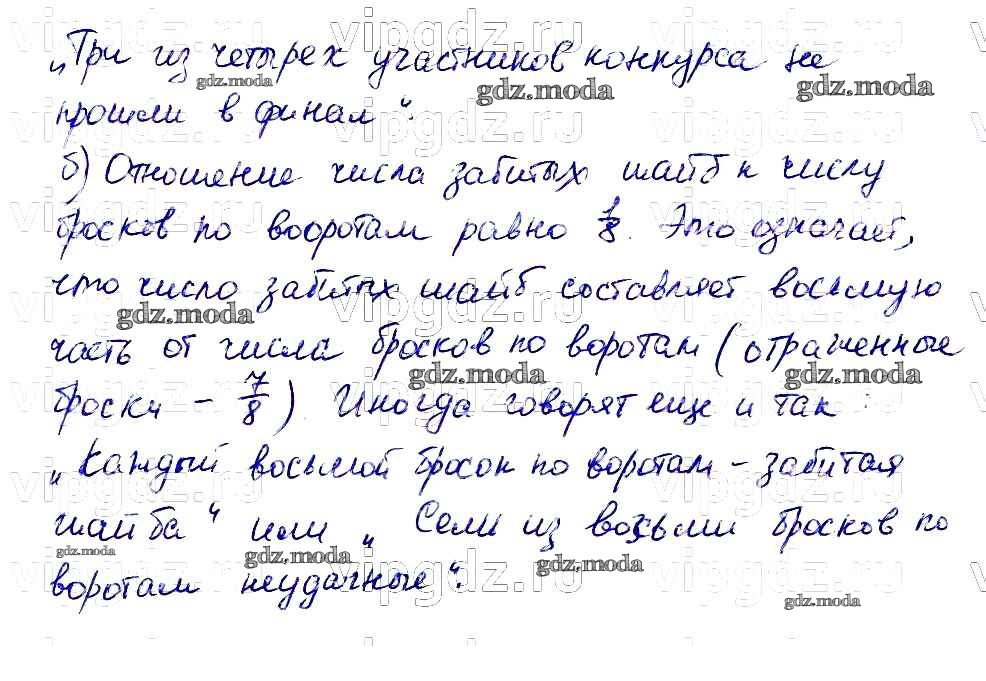 „Три из четырех участников конкурса не
прошли в финал“.
б) Отношение числа забитых шайб к числу
бросков по вооротам равно 1/8. Это означает,
что число забитых шайб составляет восьмую
часть от числа бросков по воротам (отраженные
броски – 7/8). Иногда говорят еще и так:
„Каждый восьмой бросок по воротам – забитая
шайба“ или „Семь из восьми бросков по
воротам неудачные“.